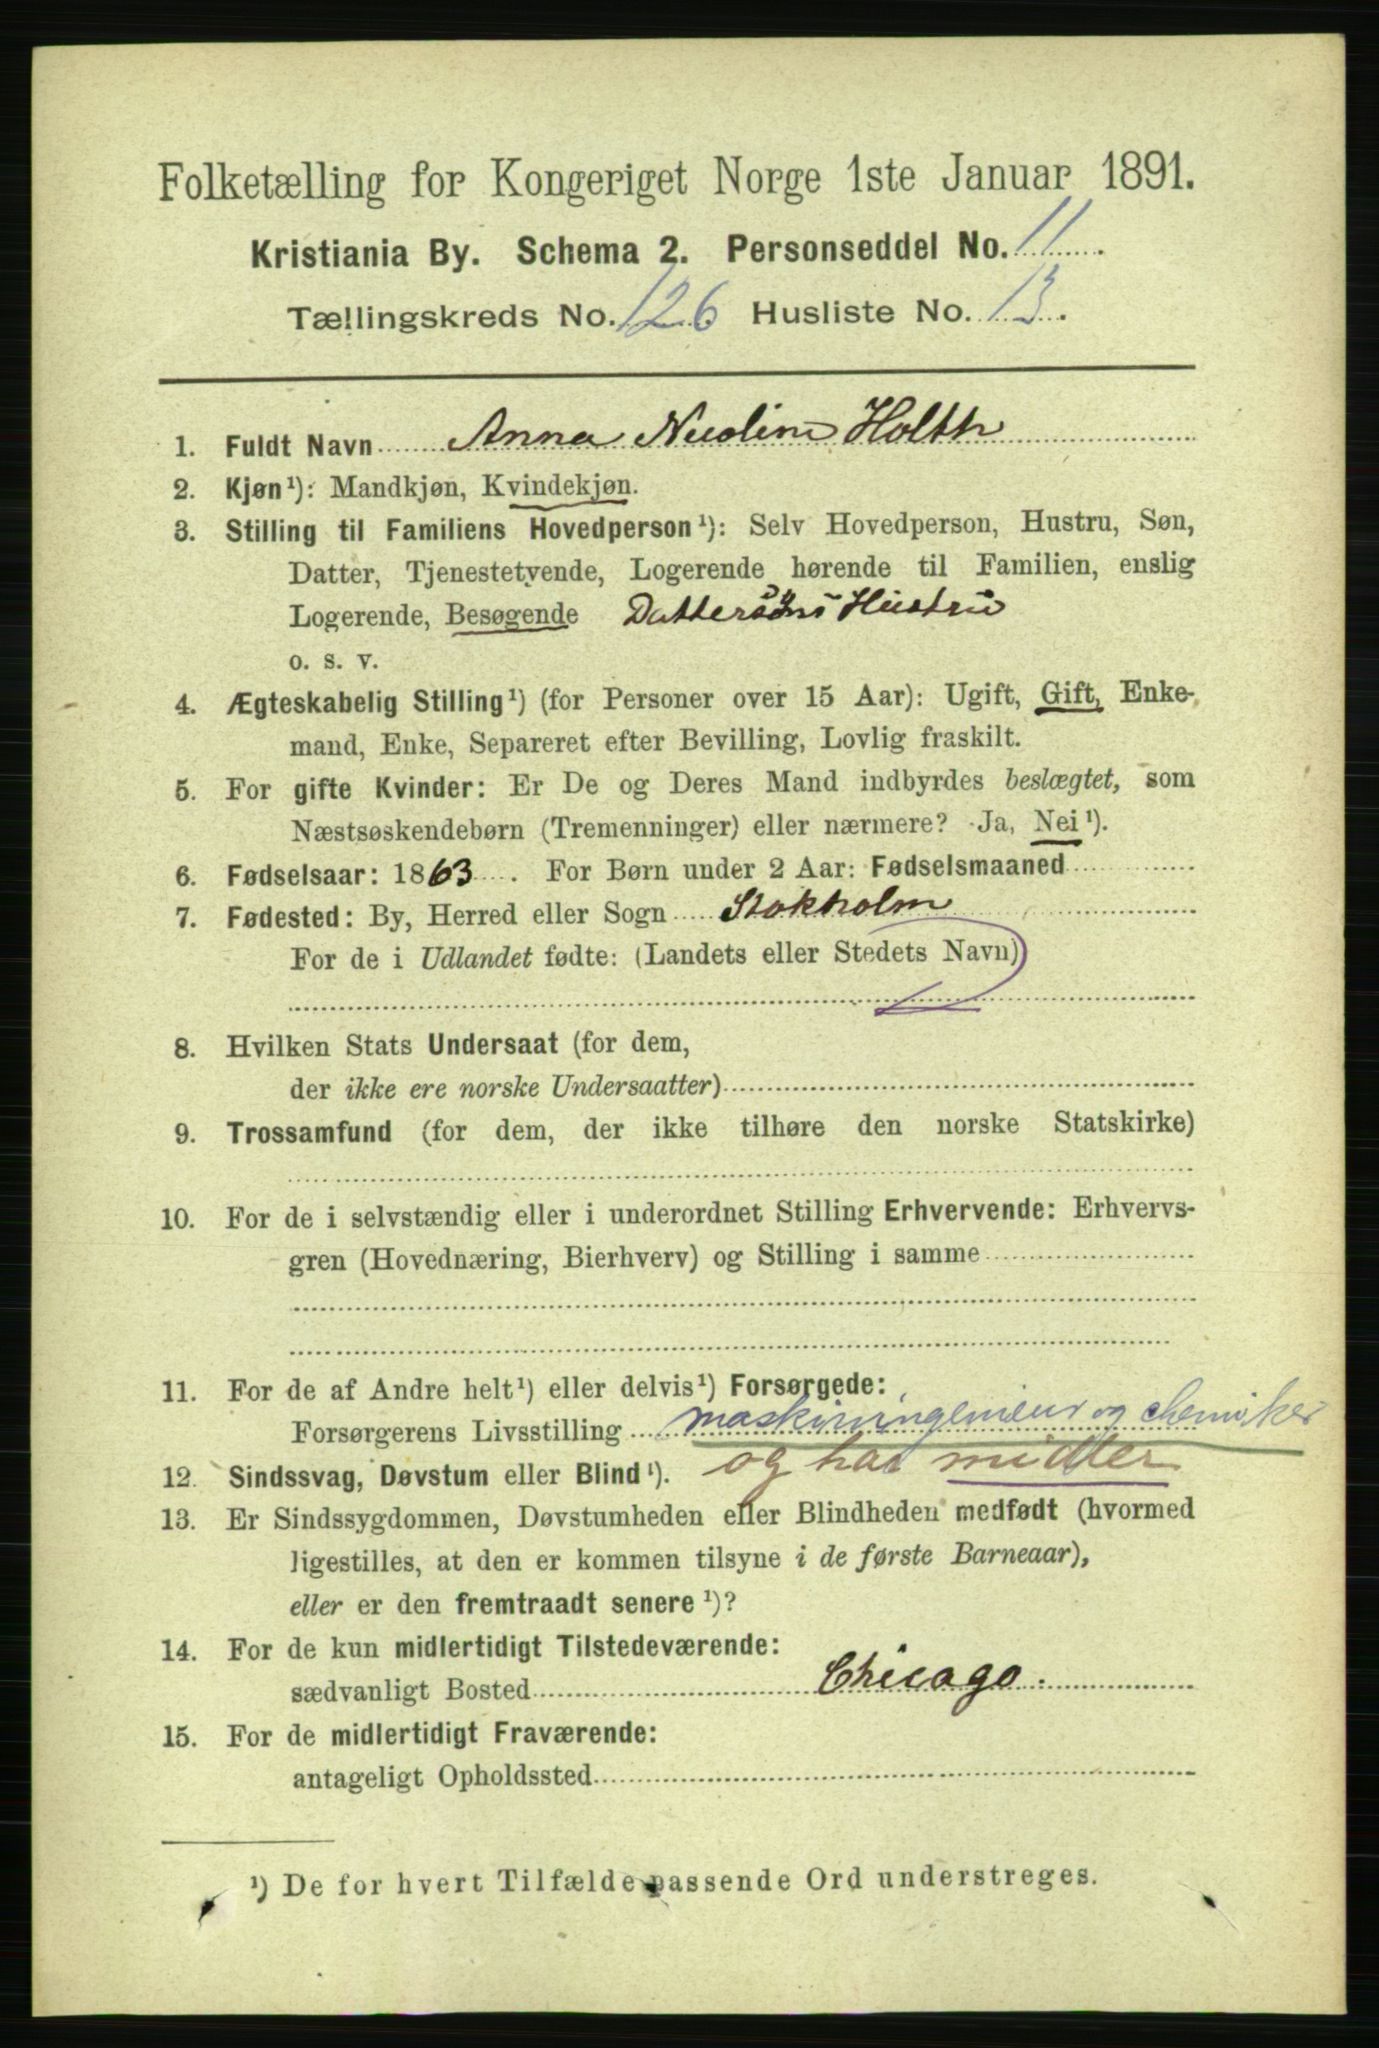 Folketælling for Kongeriget Norge 1ste Januar 1891.
Kristiania By. Schema 2. Personseddel No. 11
Tællingskreds No. 126 Husliste No. 13.
1. Fuldt Navn Anna Nicoline Holth
2. Kjøn¹): Mandkjøn, Kvindekjøn.
3. Stilling til Familiens Hovedperson¹): Selv Hovedperson, Hustru, Søn,
Datter, Tjenestetyende, Logerende hørende til Familien, enslig
Logerende, Besøgende Dattersøns Hustru
o. s. v.
4. Ægteskabelig Stilling¹) (for Personer over 15 Aar): Ugift, Gift, Enke-
mand, Enke, Separeret efter Bevilling, Lovlig fraskilt.
5. For gifte Kvinder: Er De og Deres Mand indbyrdes beslægtet, som
Næstsøskendebørn (Tremenninger) eller nærmere? Ja, Nei¹).
6. Fødselsaar: 1863. For Børn under 2 Aar: Fødselsmaaned
7. Fødested: By, Herred eller Sogn Stokholm
For de i Udlandet fødte: (Landets eller Stedets Navn)
8. Hvilken Stats Undersaat (for dem,
der ikke ere norske Undersaatter)
9. Trossamfund (for dem, der ikke tilhøre den norske Statskirke)
10. For de i selvstændig eller i underordnet Stilling Erhvervende: Erhvervs-
gren (Hovednæring, Bierhverv) og Stilling i samme
11. For de af Andre helt¹) eller delvis¹) Forsørgede:
Forsørgerens Livsstilling maskiningeniør og chemiker
12. Sindssvag, Døvstum eller Blind¹). og har midler
13. Er Sindssygdommen, Døvstumheden eller Blindheden medfødt (hvormed
ligestilles, at den er kommen tilsyne i de første Barneaar),
eller er den fremtraadt senere¹)?
14. For de kun midlertidigt Tilstedeværende:
sædvanligt Bosted Chicago.
15. For de midlertidigt Fraværende:
antageligt Opholdssted
¹) De for hvert Tilfælde passende Ord understreges.